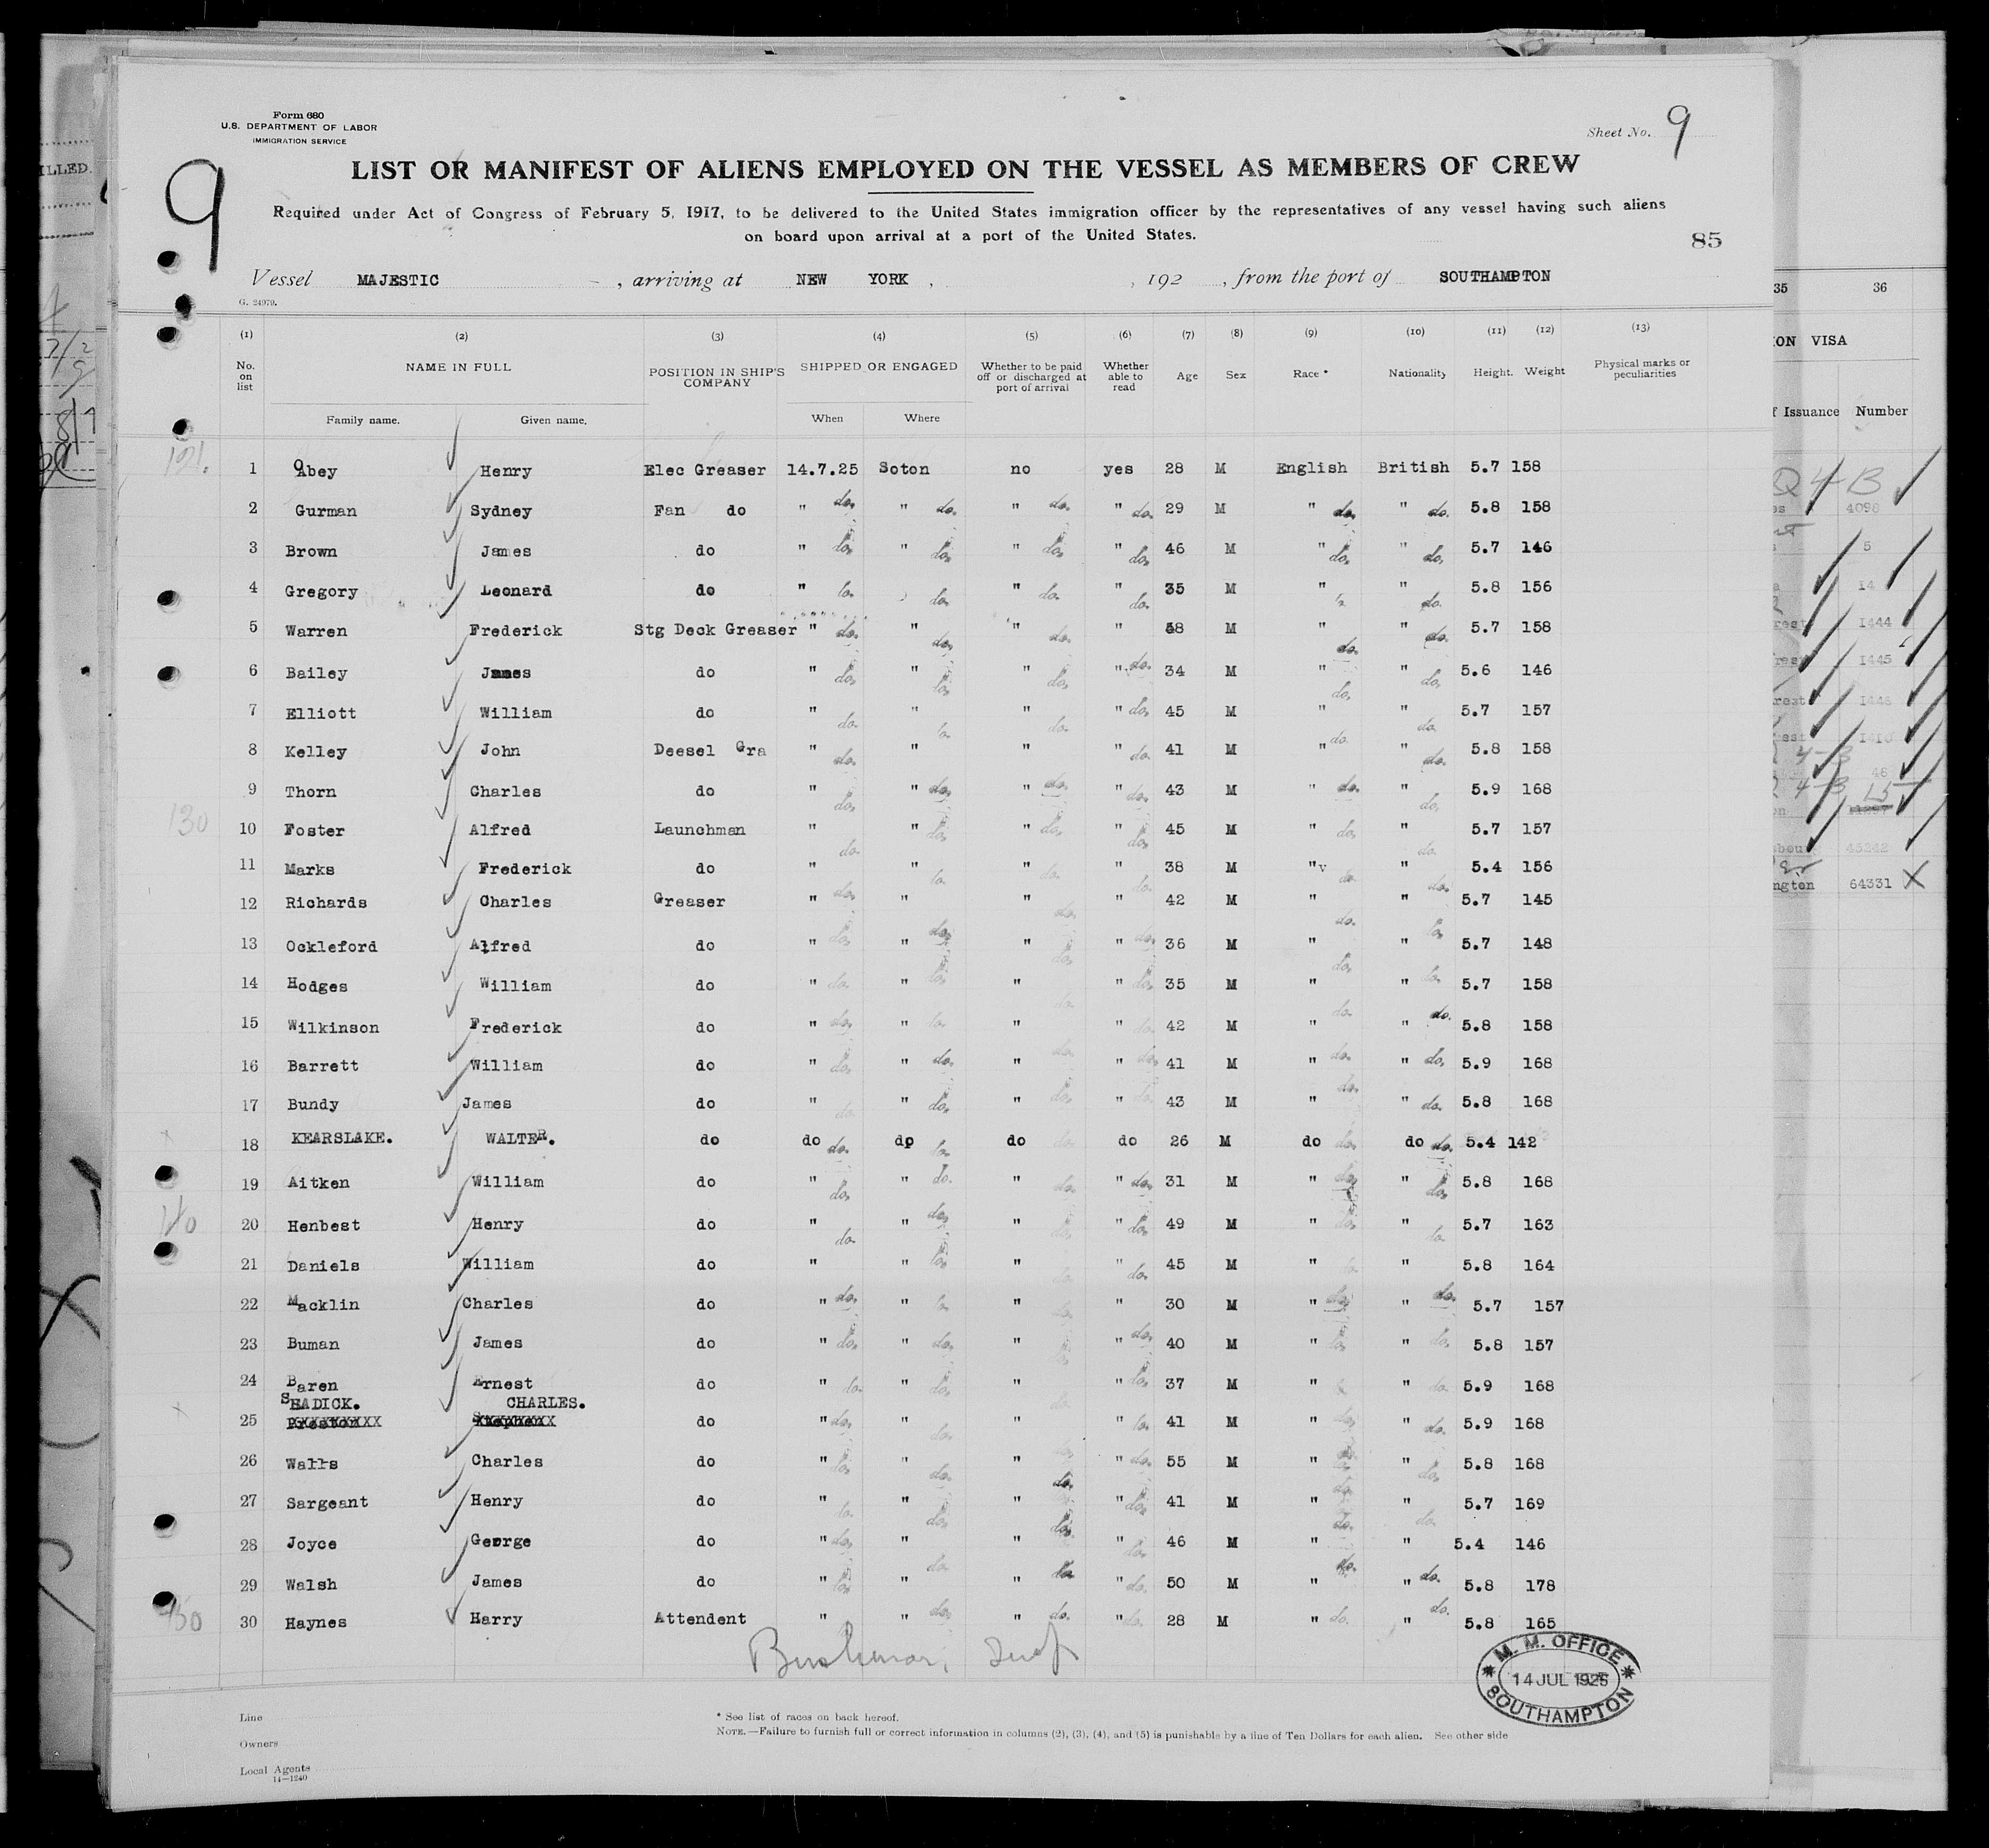 Form 680
U.S. DEPARTMENT OF LABOR
IMMIGRATION SERVICE
Sheet No. 9
9
LIST OR MANIFEST OF ALIENS EMPLOYED ON THE VESSEL AS MEMBERS OF CREW
Required under Act of Congress of February 5, 1917, to be delivered to the United States immigration officer by the representatives of any vessel having such aliens
on board upon arrival at a port of the United States.
85
Vessel MAJESTIC , arriving at NEW YORK , , 192 , from the port of SOUTHAMPTON
G. 24979.
(1) (2) (3) (4) (5) (6) (7) (8) (9) (10) (11) (12) (13) 35 36
No. on list NAME IN FULL POSITION IN SHIP'S COMPANY SHIPPED OR ENGAGED Whether to be paid off or discharged at port of arrival Whether able to read Age Sex Race * Nationality Height. Weight Physical marks or peculiarities ON VISA
Family name. Given name. When Where f Issuance Number
121. 1 Abey Henry Elec Greaser 14.7.25 Soton no yes 28 M English British 5.7 158
2 Gurman Sydney Fan do " do. " do. " do. " do. 29 M " do. " do. 5.8 158
3 Brown James do " do. " do. " do. " do. 46 M " do. " do. 5.7 146
4 Gregory Leonard do " do. do. " do. " do. 35 M " " do. 5.8 156
5 Warren Frederick Stg Deck Greaser " do. " do. " do. " 58 M " do. " do. 5.7 158
6 Bailey James do " do. " do. " do. " do. 34 M " do. " do. 5.6 146
7 Elliott William do " do. " do. " do. " do. 45 M " " do. 5.7 157
8 Kelley John Deesel Gra " do. " " " do. 41 M " do. " do. 5.8 158
9 Thorn Charles do " do. " do. " do. " do. 43 M " do. " do. 5.9 168
130 10 Foster Alfred Launchman " do. " do. " do. " do. 45 M " do. " do. 5.7 157
11 Marks Frederick do " " do. " do. " do. 38 M "v do. " do. 5.4 156
12 Richards Charles Greaser " do. " " do. " 42 M " do. " do. 5.7 145
13 Ockleford Alfred do " do. " do. " do. " do. 36 M " " 5.7 148
14 Hodges William do " do. " do. " do. " do. 35 M " do. " do. 5.7 158
15 Wilkinson Frederick do " do. " do. " " do. 42 M " do. " do. 5.8 158
16 Barrett William do " do. " do. " do. " do. 41 M " do. " do. 5.9 168
17 Bundy James do " do. " do. " do. " do. 43 M " do. " do. 5.8 168
18 KEARSLAKE. WALTER. do do do. do do. do do. do 26 M do do. do do. 5.4 142
19 Aitken William do " do. " do. " do. " do. 31 M " do. " do. 5.8 168
140 20 Henbest Henry do " do. " do. " do. " do. 49 M " do. " do. 5.7 163
21 Daniels William do " " do. " do. " do. 45 M " do. " 5.8 164
22 Macklin Charles do " do. " do. " do. " 30 M " do. " do. 5.7 157
23 Buman James do " do. " do. " do. " do. 40 M " do. " do. 5.8 157
24 Baren Ernest do " do. " do. " do. " do. 37 M " " do. 5.9 168
SHADICK. CHARLES.
25 Preston Stephen do " do. " do. " " do. 41 M " do. " do. 5.9 168
26 Walls Charles do " do. " do. " do. " do. 55 M " do. " do. 5.8 168
27 Sargeant Henry do " do. " do. " do. " do. 41 M " do. " do. 5.7 169
28 Joyce George do " do. " do. " " do. 46 M " do. " 5.4 146
29 Walsh James do " do. " " do. " do. 50 M " " do. 5.8 178
150 30 Haynes Harry Attendent " " do. " do. " do. 28 M " do. " do. 5.8 165
M. M. OFFICE
14 JUL 1925
SOUTHAMPTON
Line
Owners
Local Agents
14—1240
* See list of races on back hereof.
NOTE.—Failure to furnish full or correct information in columns (2), (3), (4), and (5) is punishable by a fine of Ten Dollars for each alien. See other side
ILLED.
4098
5
14
1444
1445
64331